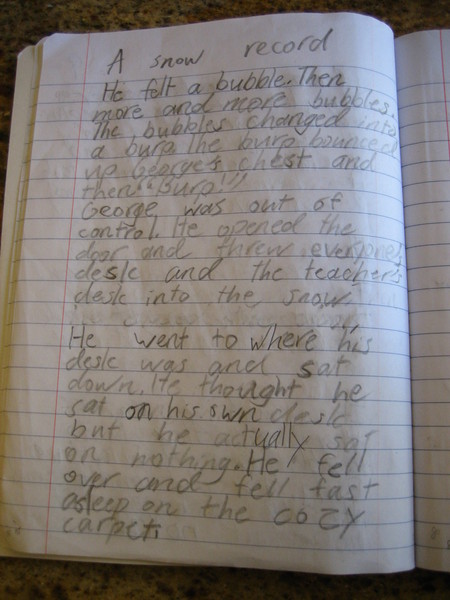 A snow record
He felt a bubble. Then
more and more bubbles.
The bubbles changed into
a burp. The burp bounced
up George's chest and
then "Burp!!"
George was out of
control. He opened the
door and threw everyone's
desk and the teacher's
desk into the snow.
He went to where his
desk was and sat
down. He thought he
sat on his own desk
but he actually sat
on nothing. He fell
over and fell fast
asleep on the cozy
carpet.